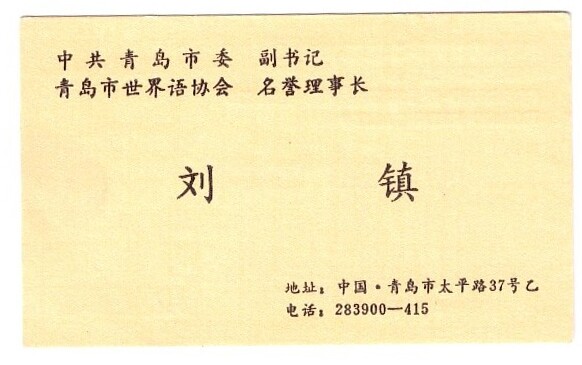 中共青岛市委 副书记
青岛市世界语协会 名誉理事长
刘 镇
地址：中国·青岛市太平路37号乙
电话：283900—415